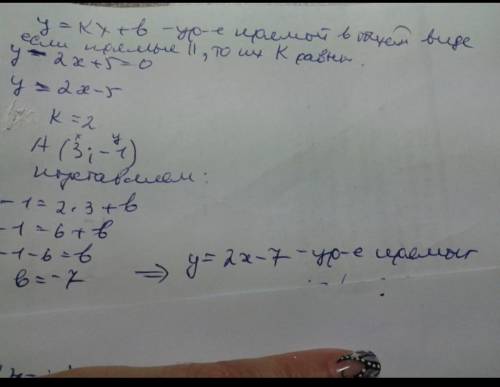 y = kx + b - ур-е прямой в общем виде
если прямые ||, то их k равны.
y - 2x + 5 = 0
y = 2x - 5
k = 2
x y
A (3; -1)
подставляем:
-1 = 2 · 3 + b
-1 = 6 + b
-1 - 6 = b
b = -7 ⇒ y = 2x - 7 - ур-е прямой